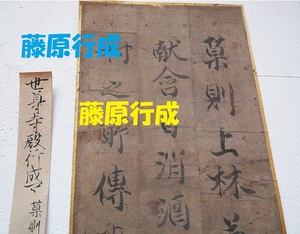 藤原行成
藤原行成
菓則上林
献含自消酒
村之所傳
世尊寺殿行成
菓則